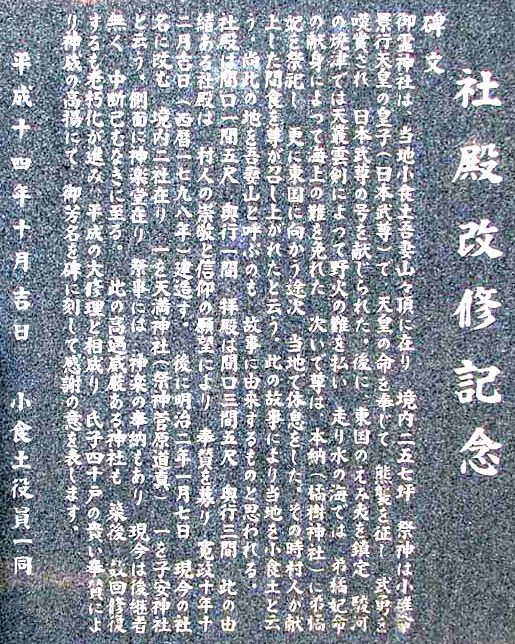 社殿改修記念
碑文
御霊神社は、当地小食土吾妻山々頂に在り 境内二五七坪 祭神は小碓命
景行天皇の皇子（日本武尊）で 天皇の命を奉じて 熊襲を征し 武勇を
嘆賞され 日本武尊の号を献じられた。後に 東国のえみ夷を鎮定 駿河
の焼津では天叢雲剣によって野火の難を払い 走り水の海では 弟橘妃命
の献身によって海上の難を免れた 次いで尊は、本納（橘樹神社）に弟橘
妃を祭祀し 更に東国に向かう途次、当地で休息をした。その時村人が献
上した間食を尊が召し上がれたと云う。此の故事により当地を小食土と云
う、尚此の地を吾妻山と呼ぶのも 故事に由来するものと思われる。
社殿は間口一間五尺 奥行一間 拝殿は間口三間五尺 奥行三間 此の由
緒ある社殿は 村人の崇敬と信仰の願望により 奉賛を募り 寛政十年十
二月吉日（西暦一七九八年）建造す。 後に明治二年一月七日 現今の社
名に改む 境内二社在り 一を天満神社（祭神菅原道真） 一を子安神社
と云う。側面に神楽堂在り 祭事には 神楽の奉納もあり 現今は後継者
無く 中断己むなきに至る。 此の高遇威厳ある神社も 築後 数回修復
するも老朽化が進み 平成の大修理と相成り 氏子四十戸の貴い奉賛によ
り神威の高揚にて 御芳名を碑に刻して感謝の意を表します。
平成十四年十月吉日 小食土役員一同